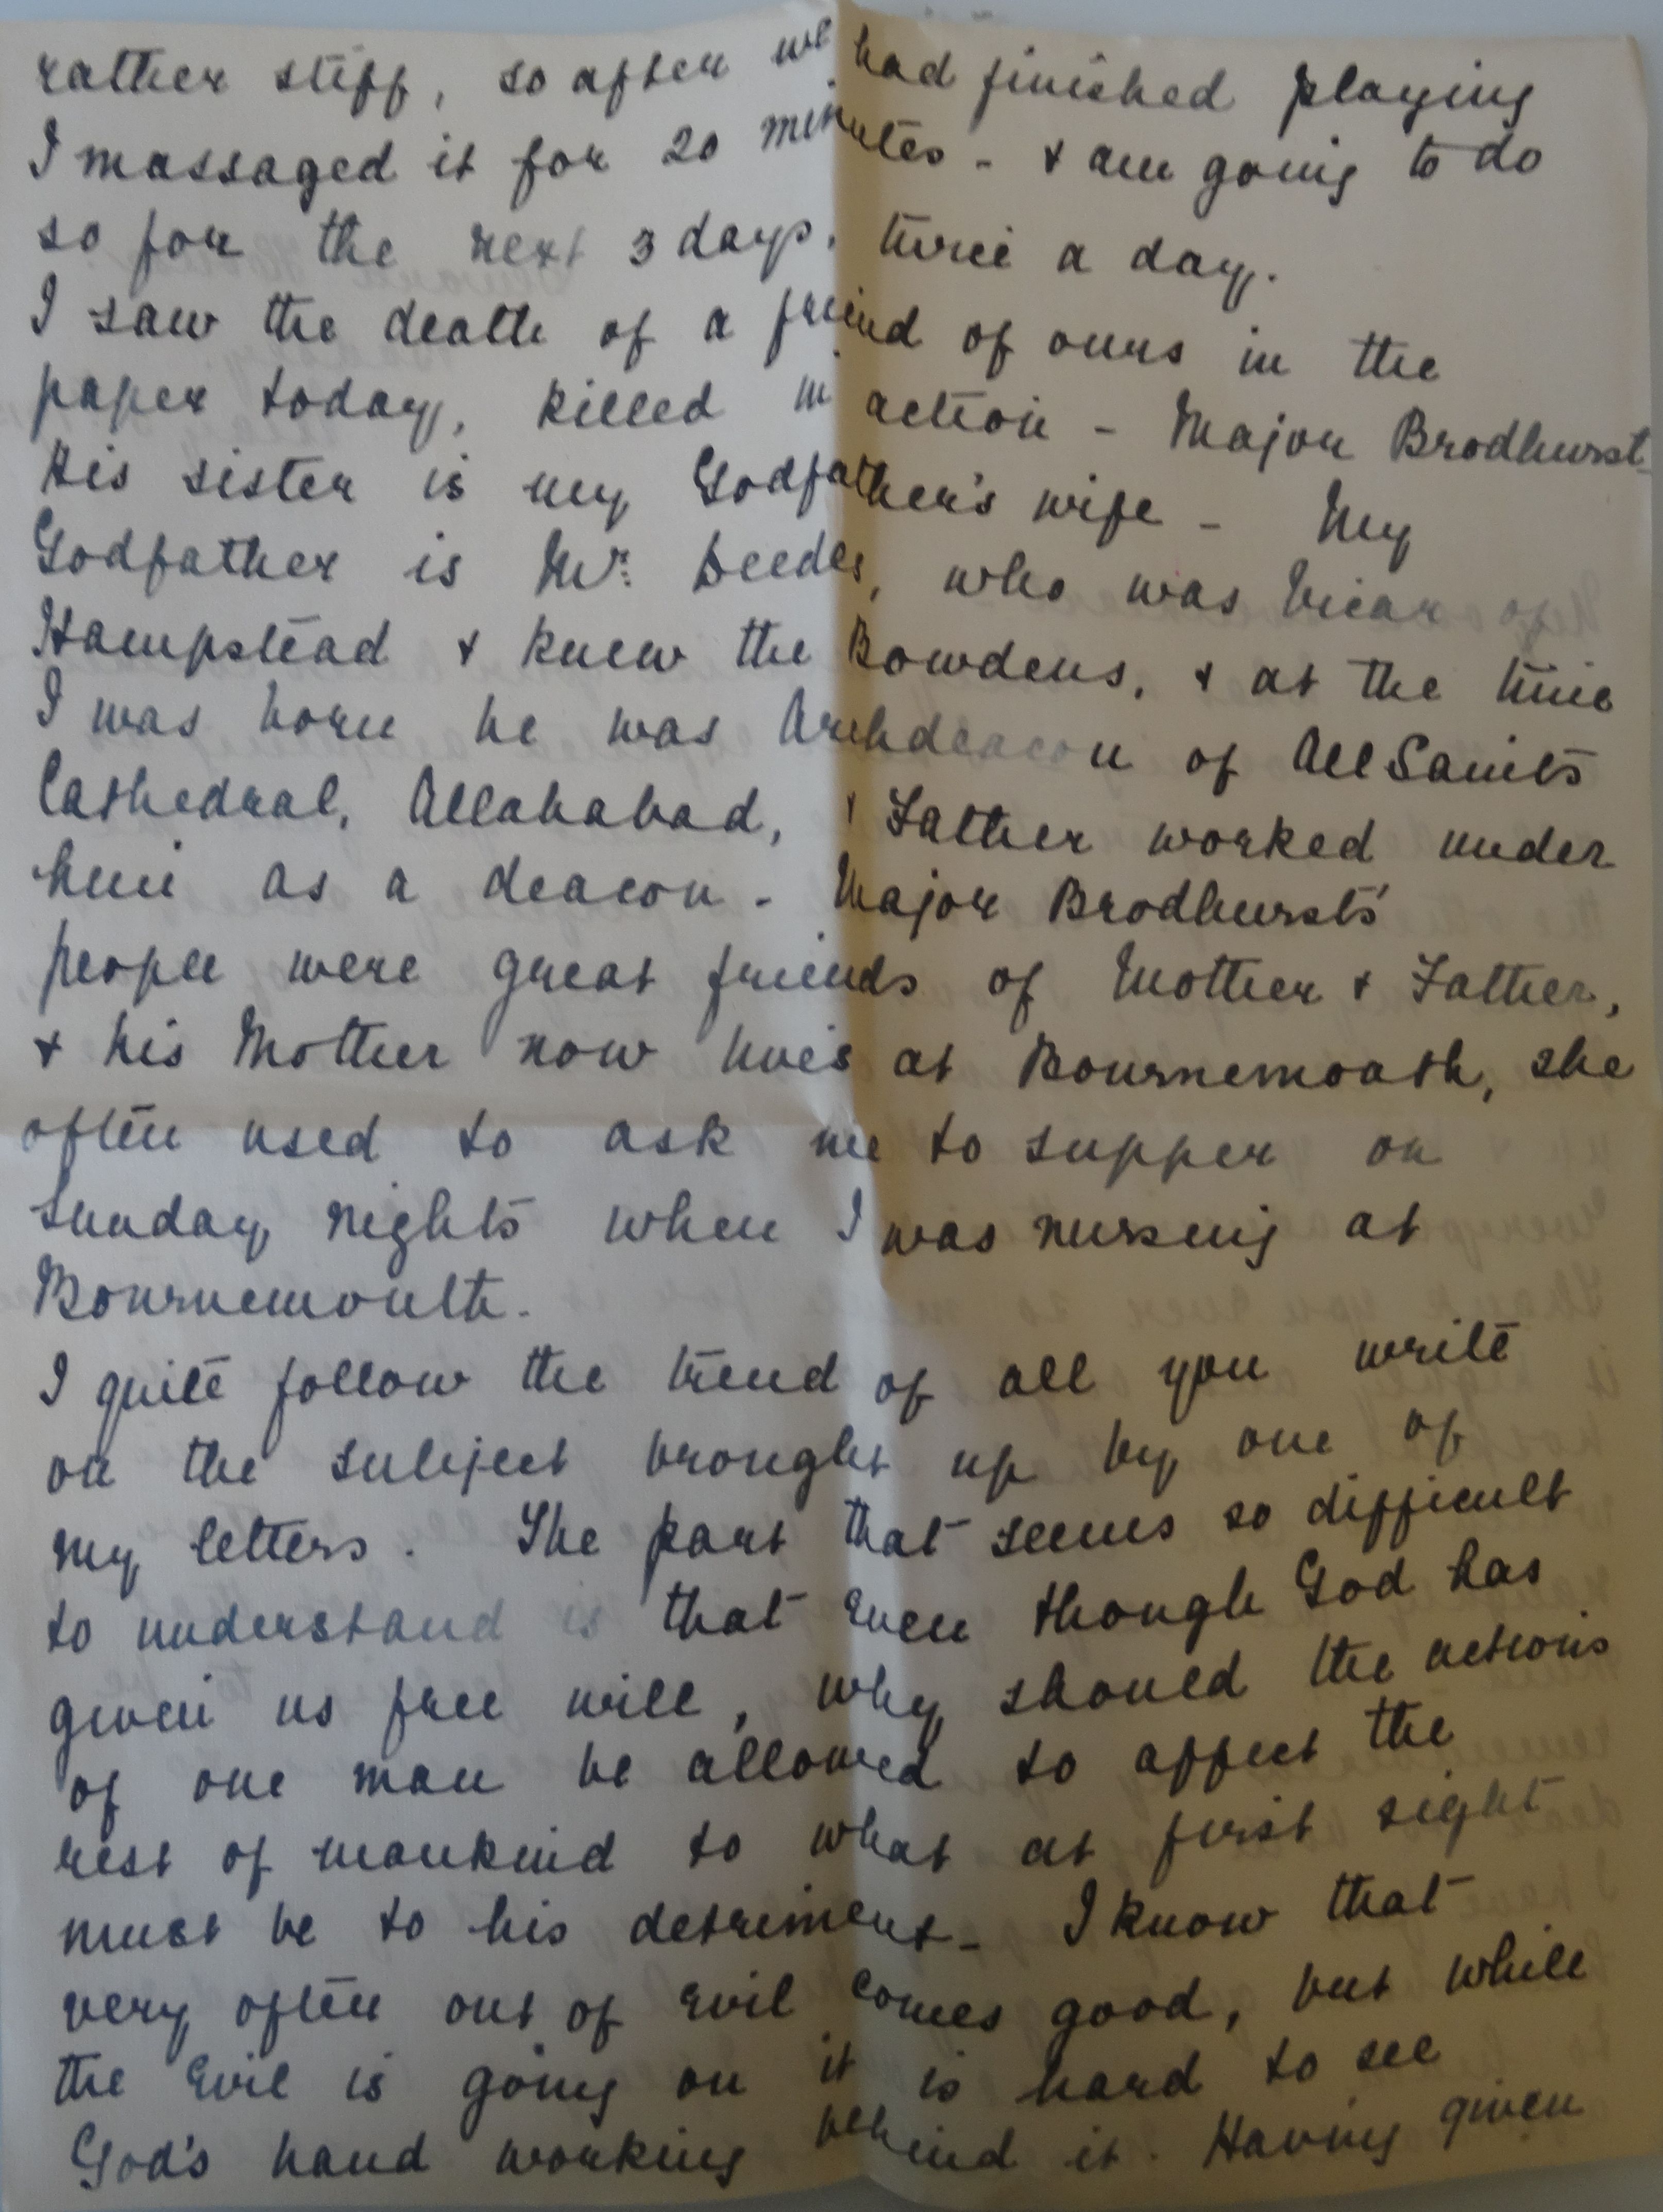 rather stiff, so after we had finished playing
I massaged it for 20 minutes - & am going to do
so for the next 3 days, twice a day.
I saw the death of a friend of ours in the
paper today, killed in action - Major Brodhurst
His sister is my Godfather's wife - My
Godfather is Mr. Deedes, who was Vicar of
Hampstead & knew the Bowdens, & at the time
I was born he was Archdeacon of All Saints
Cathedral, Allahabad, & Father worked under
him as a deacon - Major Brodhursts'
people were great friends of Mother & Father,
& his Mother now lives at Bournemouth, she
often used to ask me to supper on
Sunday nights when I was nursing at
Bournemouth.
I quite follow the trend of all you write
on the subject brought up by one of
my letters. The part that seems so difficult
to understand is that even though God has
given us free will, why should the actions
of one man be allowed to affect the
rest of mankind to what at first sight
must be to his detriment - I know that
very often out of evil comes good, but while
the evil is going on it is hard to see
God's hand working behind it. Having given